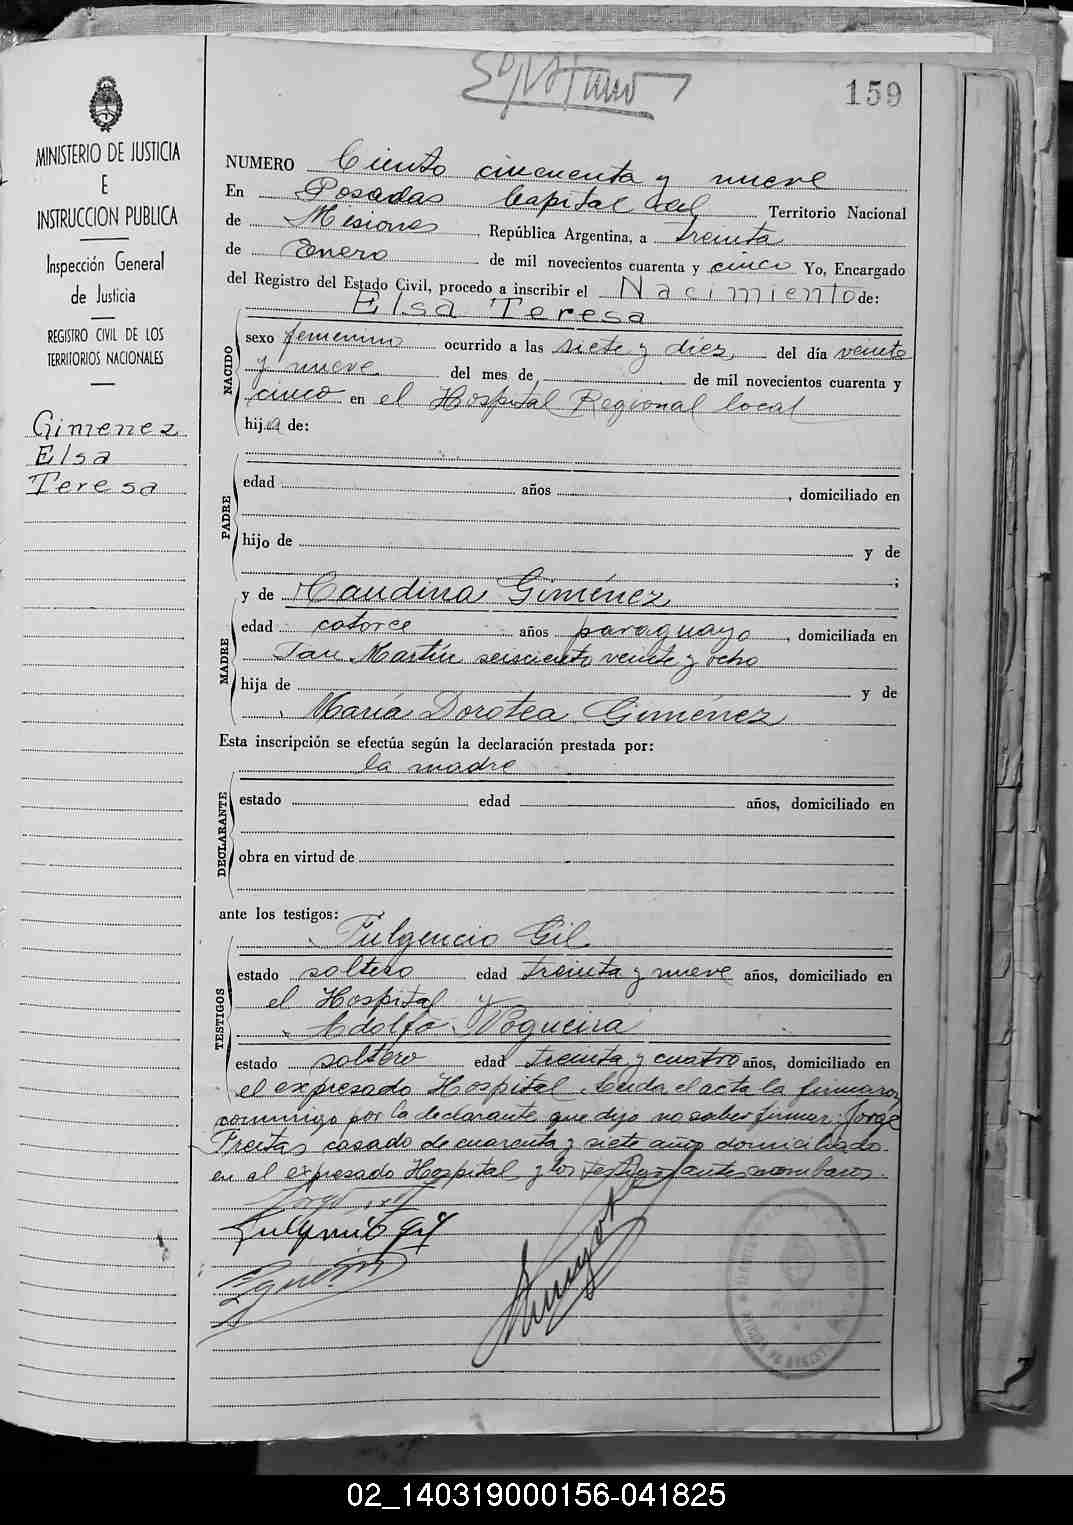 159
MINISTERIO DE JUSTICIA
E
INSTRUCCION PUBLICA
Inspección General
de Justicia
REGISTRO CIVIL DE LOS
TERRITORIOS NACIONALES
Gimenez
Elsa
Teresa
NUMERO Ciento cincuenta y nueve
En Posadas Capital del Territorio Nacional
de Misiones República Argentina, a treinta
de Enero de mil novecientos cuarenta y cinco Yo, Encargado
del Registro del Estado Civil, procedo a inscribir el Nacimiento de:
Elsa Teresa
NACIDO
sexo femenino ocurrido a las siete y diez, del día veinte
y nueve del mes de, de mil novecientos cuarenta y
cinco en el Hospital Regional local
hija de:
PADRE
edad años , domiciliado en
hijo de y de
;
y de Candina Giménez
MADRE
edad catorce años paraguayo , domiciliada en
San Martín seisciento veinte y ocho
hija de y de
María Dorotea Giménez
Esta inscripción se efectúa según la declaración prestada por:
la madre
DECLARANTE
estado edad años, domiciliado en
obra en virtud de
ante los testigos:
Fulgencio Gil
TESTIGOS
estado soltero edad treinta y nueve años, domiciliado en
el Hospital y
Adolfo Nogueira
estado soltero edad treinta y cuatro años, domiciliado en
el expresado Hospital. Leida el acta la firmaron
conmigo por la declarante que dijo no saber firmar: Jorge
Freitas casado de cuarenta y siete años domiciliado
en el expresado Hospital y los testigos antes nombrados.
02_140319000156-041825